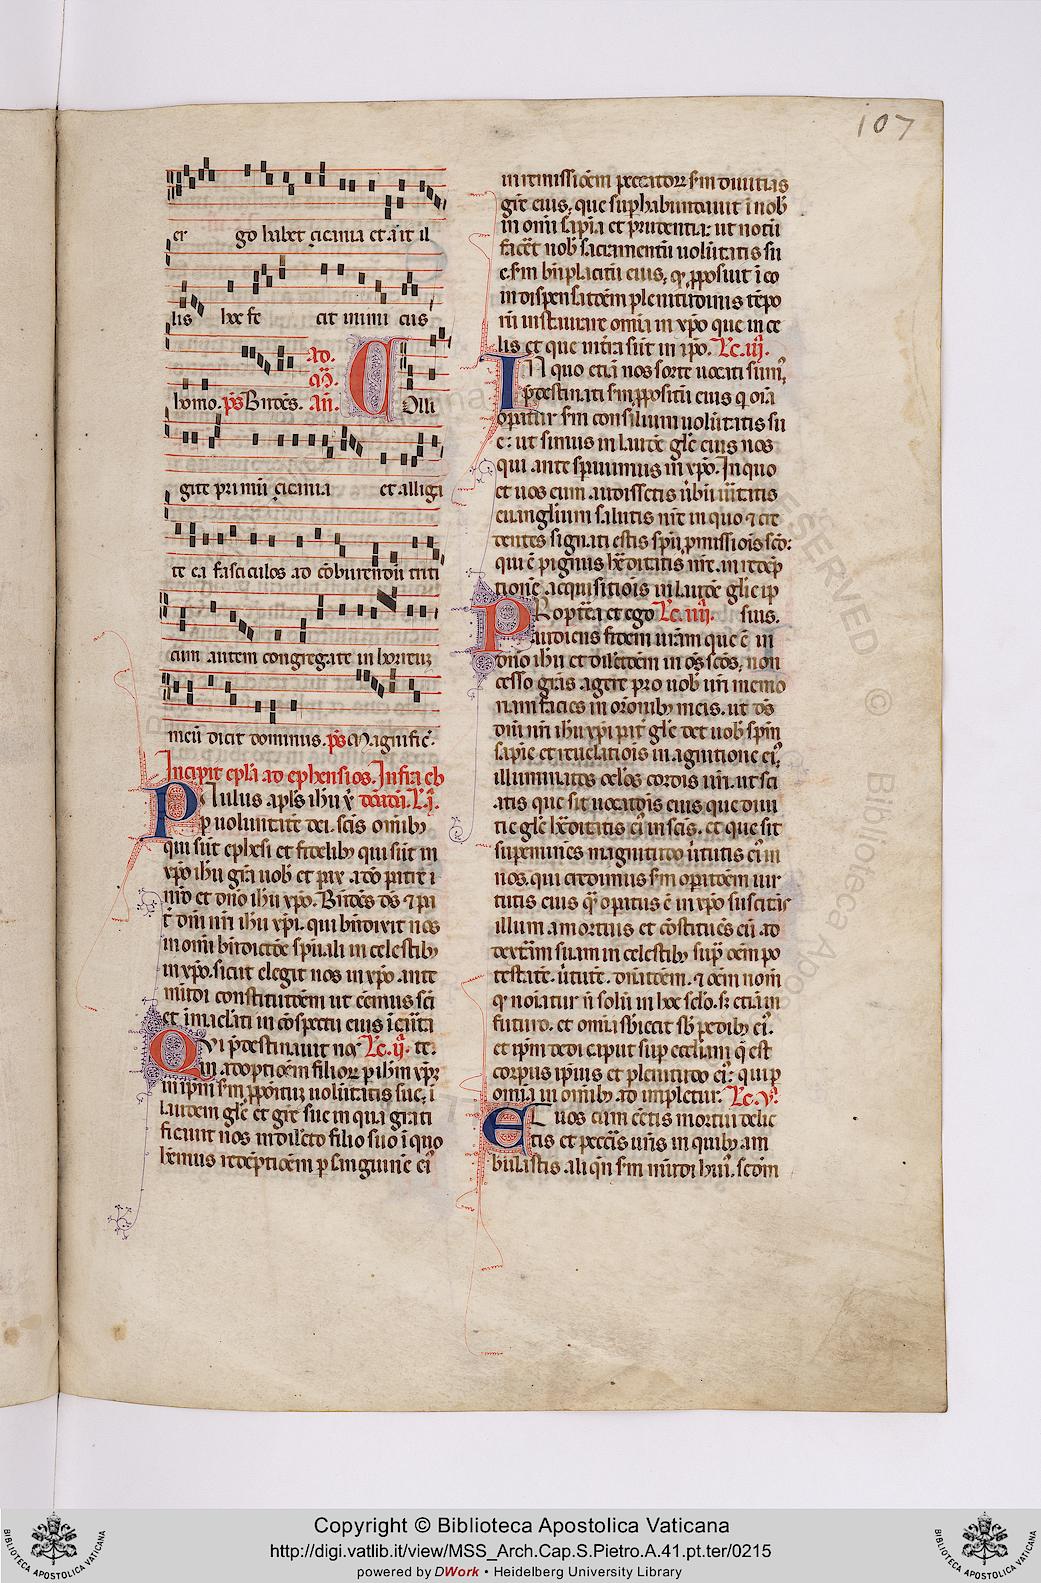 107
er go habet çiçania et ait il
lis hoc fe cit inimi cus
homo. p̃s Bñdcs. Ad. Mᷓ. Añ. COlli
gite primũ çiçania et alliga
te ea fasciculos ad cõburendũ triti
cum autem congregate in horreuʒ
meũ dicit dominus. p̃s Magnific̃.
Incipit epl̃a ad ephesios. Infra eb
PAulus apl̃s ihũ x̃ domad. L̃.j.
p uoluntatẽ dei. scĩs omĩbꝫ
qui sũt ephesi et fidelibꝫ qui sũt in
xp̃o ihũ gr̃a uob̃ et pax a deo patre
nr̃o et dño ihũ xp̃o. Bñdcs ds ⁊ pa
t̃ dñi nr̃i ihũ xp̃i. qui bñdixit nos
in omĩ bñdictõe spũali in celestibꝫ
in xp̃o. sicut elegit nos in xp̃o ante
mũdi constitutõem ut eẽmus scĩ
et imaclãti in cõspectu eius ĩ carita
QVi p̃destinauit nos Lc̃.ij. te.
in adoptiõem filioꝝ p ihm xp̃m
in ipm̃ scđm p̃positũ uolũtatis sue. ĩ
laudem glẽ et grẽ sue in qua grati
ficauit nos in dilecto filio suo ĩ quo
hẽmus redẽptiõem p sanguinẽ ei᷒
in remissiõem peccatoꝝ scđm diuitias
grẽ eius. que suphabundauit ĩ nob̃
in omĩ sapĩa et prudentia: ut notũ
facẽt nob̃ sacramentũ uolũtatis su
e. scđm bñplacitũ eius. qđ p̃posuit ĩ eo
in dispensatiõem plenitudinis tẽpo
rũ instaurare omĩa in xp̃o que in ce
lis et que in tr̃a sũt in ip̃o. Lc̃.iij.
IN quo etiã nos sorte uocati sum᷒
p̃destinati scđm p̃positũ eius q oĩa
opatur scđm consilium uolũtatis su
e: ut simus in laudẽ glẽ eius nos
qui ante sperauimus in xp̃o. In quo
et uos cum audissetis ũbũ ũitatis
euangliũm salutis ur̃e in quo ⁊ cre
dentes signati estis spũ p̃missiõis scõ:
qui ẽ pignus hẽditatis nr̃e. in redẽp
tionẽ acquisitiõis in laudẽ glẽ ip
PRopt̃ea et ego Lc̃.iiij. sius.
audiens fidem uram que ẽ in
dño ihũ et dilectõem in os scõs. non
cesso gr̃as agere pro uob̃ ur̃i memo
riam faciens in orõnibꝫ meis. ut ds
dñi nr̃i ihũ xp̃i pat̃ glẽ det uob̃ spm̃
sapĩe et reuelatiõis in agnitione ei᷒.
illuminatos oclõs cordis ur̃i. ut sci
atis que sit uocatõis eius que diui
tie glẽ hẽditatis ei᷒ in scĩs. et que sit
supeminẽs magnitudo ũtutis ei᷒ in
nos. qui credimus scđm opatiõem uir
tutis eius qᷓ opatus ẽ in xp̃o suscitãs
illum a mortuis et cõstituẽs eũ ad
dextãm suam in celestibꝫ sup̃ oẽm po
testatẽ. ũtutẽ. dñatõem. ⁊ oẽm nomẽ
qđ noĩatur ñ solũ in hoc sclõ. s; etiã in
futuro. et omĩa sbiecit sb̃ pedibꝫ ei᷒.
et ipm̃ dedit caput sup eccliam q̃ est
corpus ipsius et plenitudo ei᷒: qui p
omnia in omĩbꝫ ad impletur. Lc̃.v.
ET uos cum eẽtis mortui delic
tis et peccĩs ur̃is in quibꝫ am
bulastis aliqñ scđm mũdi hui᷒. scđm
Copyright © Biblioteca Apostolica Vaticana
http://digi.vatlib.it/view/MSS_Arch.Cap.S.Pietro.A.41.pt.ter/0215
powered by DWork • Heidelberg University Library